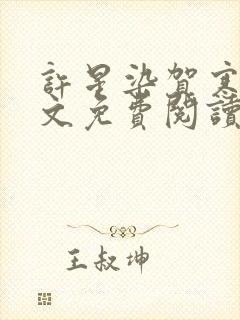 許星染賀寒
文免費閱讀
王叔坤